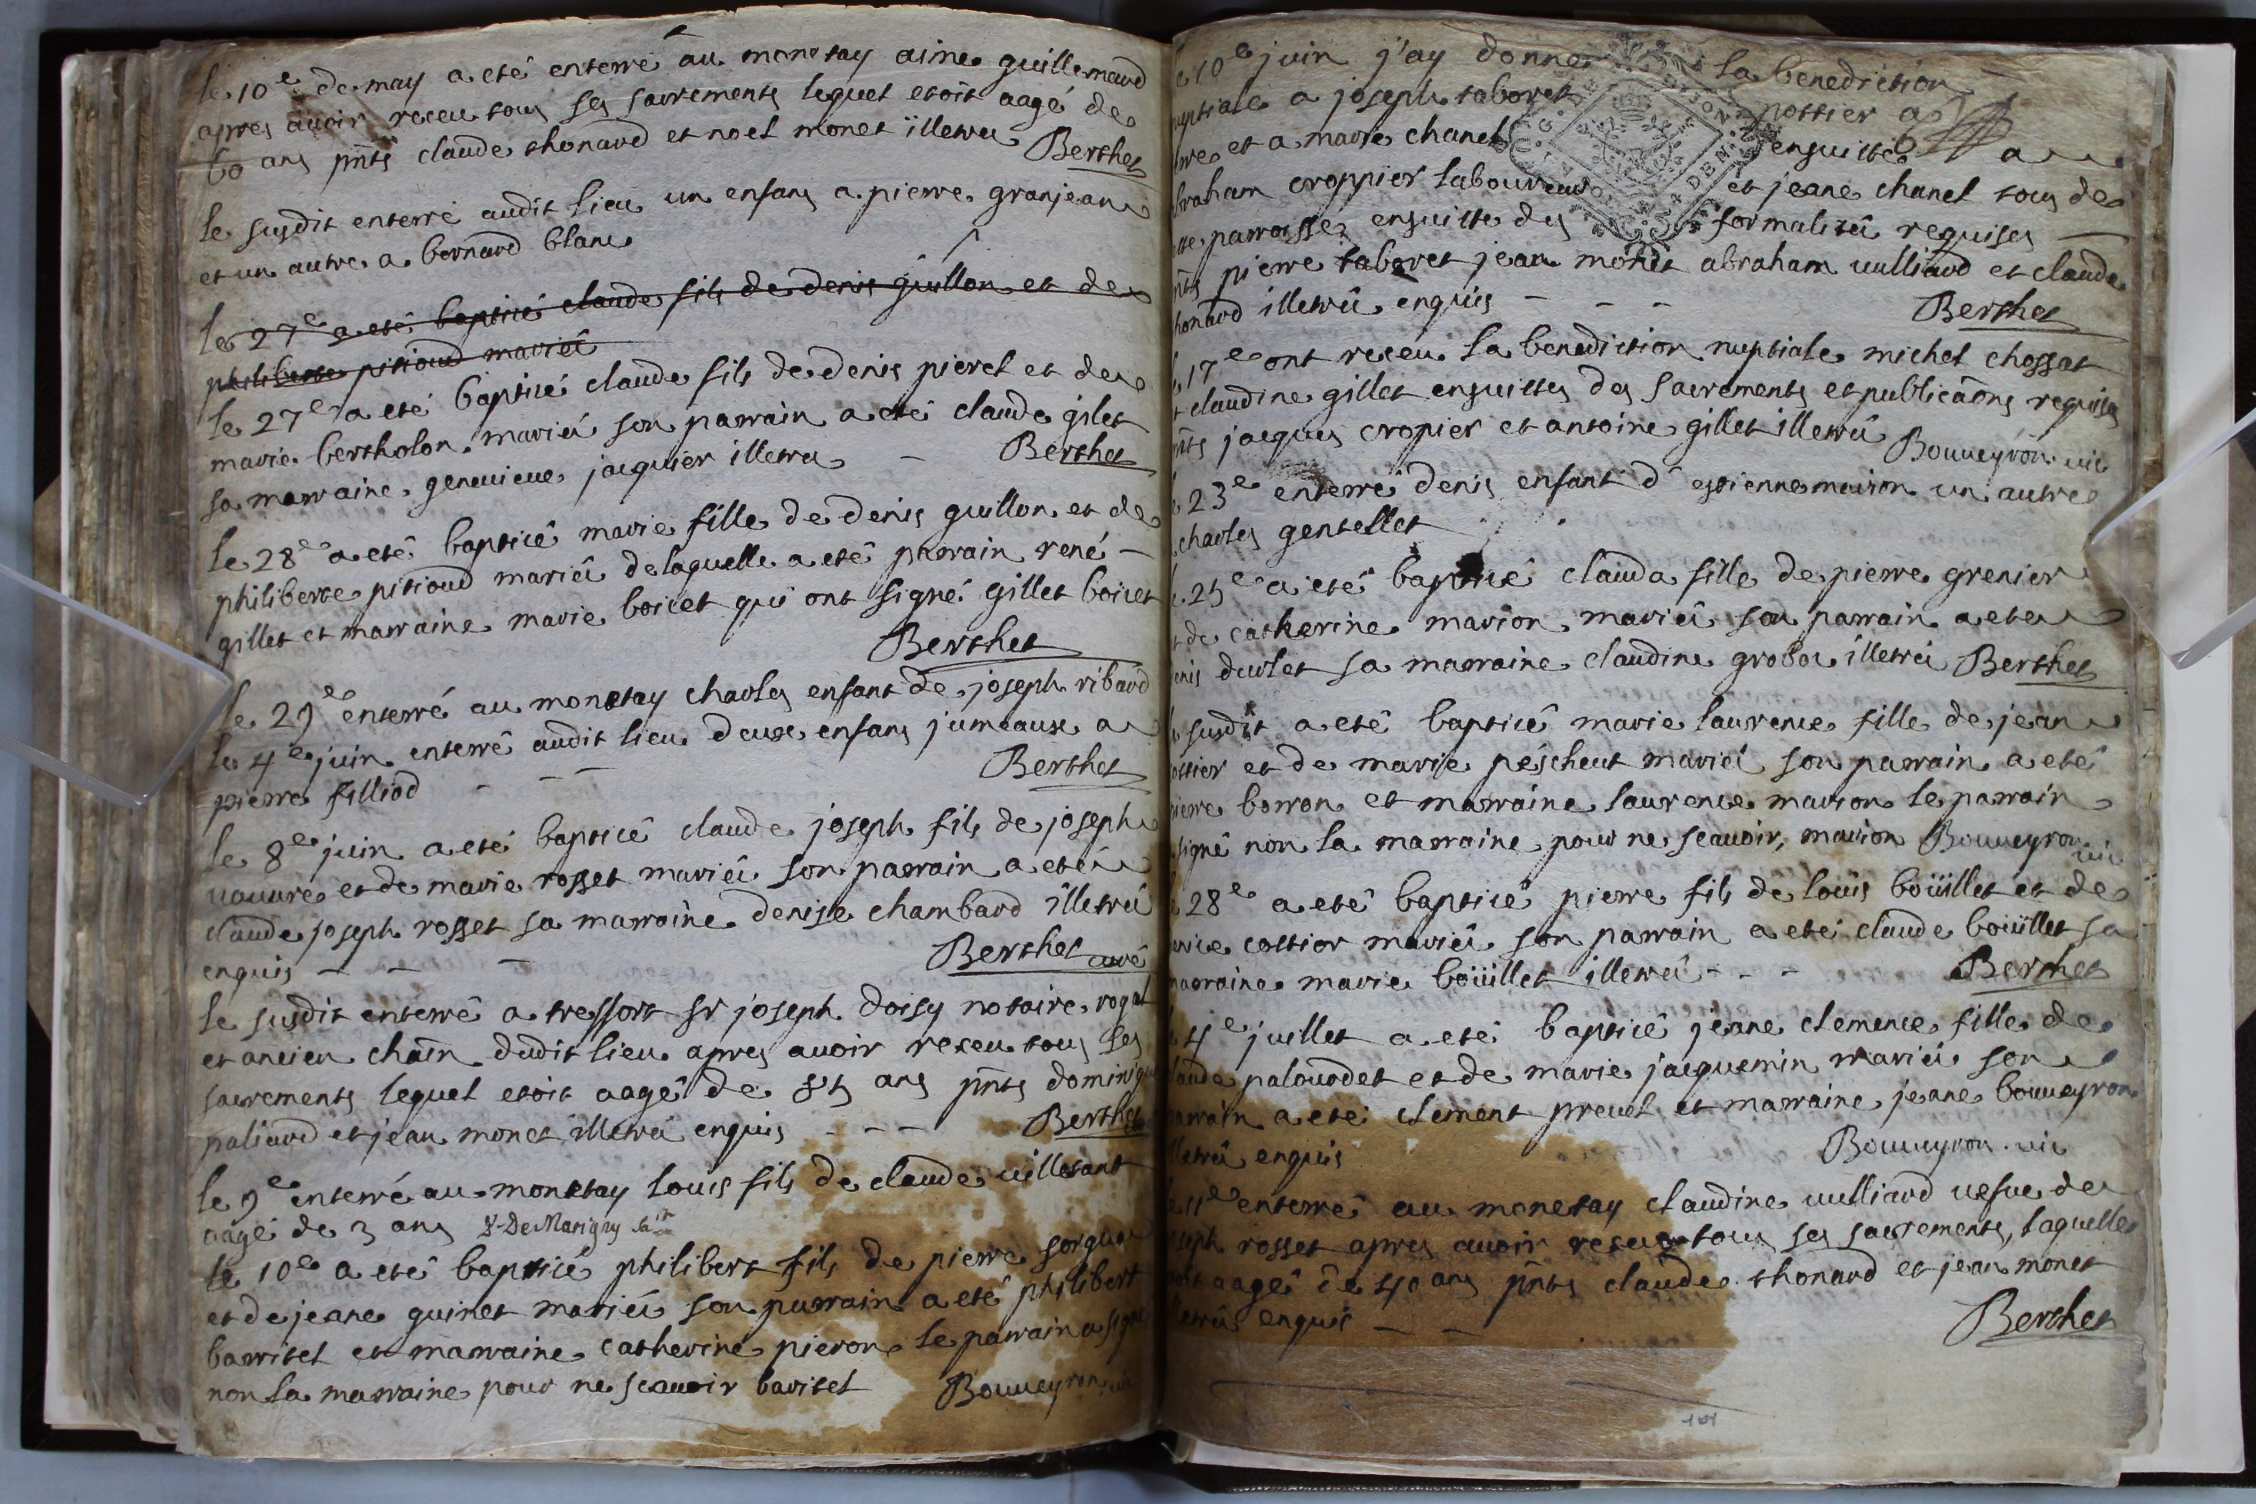 le 10e de may a eté enterré au monetay aime guillemaud
apres avoir receu tous ses sacrements lequel etoit aagé de
60 ans pnts claude thonard et noel monet illetrés Berthet
le susdit enterré audit lieu un enfant a pierre granjean
et un autre a bernard blanc
le 27e a eté baptisé claude fils de denis guillon et de
philiberte pitioud mariés
le 27e a eté baptisé claude fils de denis pierel et de
marie bertholon mariés son parrain a eté claude gilet
sa marraine genevieve jaquier illetrés Berthet
le 28e a eté baptisé marie fille de denis guillon et de
philiberte pitioud mariés de laquelle a eté parrain rené
gillet et marraine marie boicet qui ont signé gillet boicet
Berthet
le 29e enterré au monetay charles enfant de joseph ribaud
le 4e juin enterré audit lieu deux enfans jumeaux a
pierre filliod Berthet
le 8e juin a eté baptisé claude joseph fils de joseph
vauvre et de marie rosset mariés son parrain a eté
claude joseph rosset sa marraine denise chambard illetrés
enquis Berthet curé
le susdit enterré a treffort sr joseph doisy notaire royal
et ancien chain dudit lieu apres avoir receu tous les
sacrements lequel etoit aagé de ans pnts dominique
paliard et jean monet illetrés enquis Berthet
le 9e enterré au monetay louis fils de claude
aagé de 3 ans
le 10e a eté baptisé philibert fils de pierre
et de jeane guinet mariés son parrain a eté philibert
barritel et marraine catherine pieron le parrain a signé
non la marraine pour ne scavoir baritel Bouveyron vic
10e juin j'ay donné la benediction
nuptiale a joseph taboret pottier a
et a marie chanel ensuitte a
abraham croppier laboureur et jeane chanel tous de
parroisse ensuitte des formalités requises
pnts pierre taboret jean monet abraham vulliard et claude
thonard illetrés enquis Berthet
17e ont receu la benediction nuptiale michel chossat
et claudine gillet ensuittes des sacrements et publicaons requises
pnts jacques cropier et antoine gillet illetrés Bouveyron vic
23e enterré denis enfant d'estienne marion un autre
charles gentellet
25e a eté baptisé clauda fille de pierre grenier
et de catherine marion mariés son parrain a eté
denis devolet sa marraine claudine grobo illetrés Berthet
susdit a eté baptisé marie laurence fille de jean
pottier et de marie péscheut mariés son parrain a eté
pierre borron et marraine laurence marion le parrain
a signé non la marraine pour ne scavoir, marion Bouveyron vic
28e a eté baptisé pierre fils de loüis boüillet et de
marie cottior mariés son parrain a eté claude boüillet sa
marraine marie boüillet illetrés Berthet
4e juillet a eté baptisé jeane clemence fille de
claude palourdet et de marie jacquemin mariés son
parrain a eté clement prevel et marraine jeane bouveyron
illetrés enquis Bouveyron vic
11e enterré au monetay claudine vulliard vefve de
joseph rosset apres avoir receu tous ses sacrements, laquelle
etoit aagé de 40 ans pnts claude thonard et jean monet
illetrés enquis Berthet
101